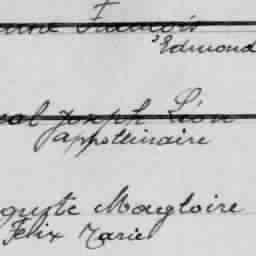 François
Edmond
Joseph Léon
appollinaire
Magloire
Félix Marie